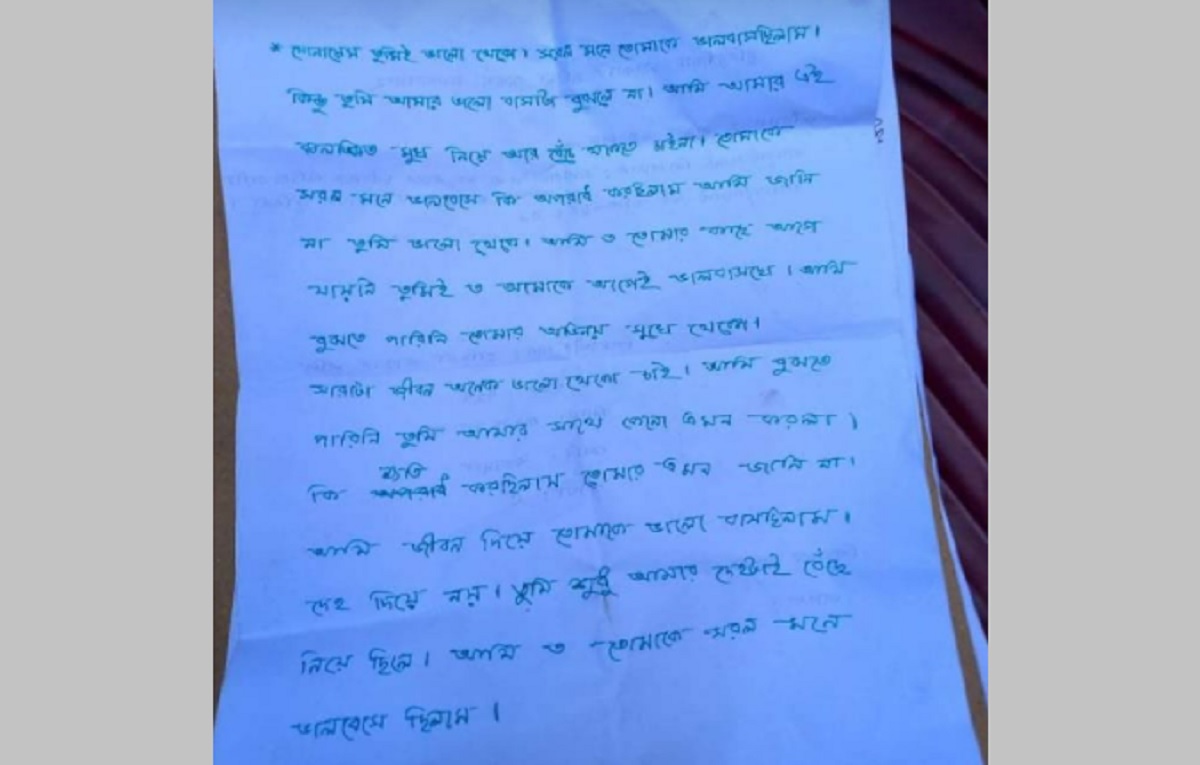 * সোনালেম তুমিই ভালো থেকো। সরল মনে তোমাকে ভালবাসছিলাম।
কিন্তু তুমি আমার ভালো বাসাটা বুঝলে না। আমি আমার এই
কলঙ্কিত মুখ নিয়ে আর বেঁচে থাকতে চাইনা। তোমাকে
সরল মনে ভালবেসে কি অপরাধ করছিলাম আমি জানি
না তুমি ভালো থেকো। আমি ত তোমার কাছে আগে
যায়নি তুমিই ত আমাকে আগেই ভালবাসছো। আমি
বুঝতে পারিনি তোমার অভিনয় সুখে থেকো।
সারটা জীবন অনেক ভালো থেকো চাই। আমি বুঝতে
পারিনি তুমি আমার সাথে কেনো এমন করলা।
কি ক্ষতি করছিলাম তোমার এমন জানি না।
আমি জীবন দিয়ে তোমাকে ভালো বাসছিলাম।
দেহ দিয়ে নয়। তুমি শুধু আমার দেহটাই বেঁছে
নিয়ে ছিলে। আমি ত তোমাকে সরল মনে
ভালবেসে ছিলাম।